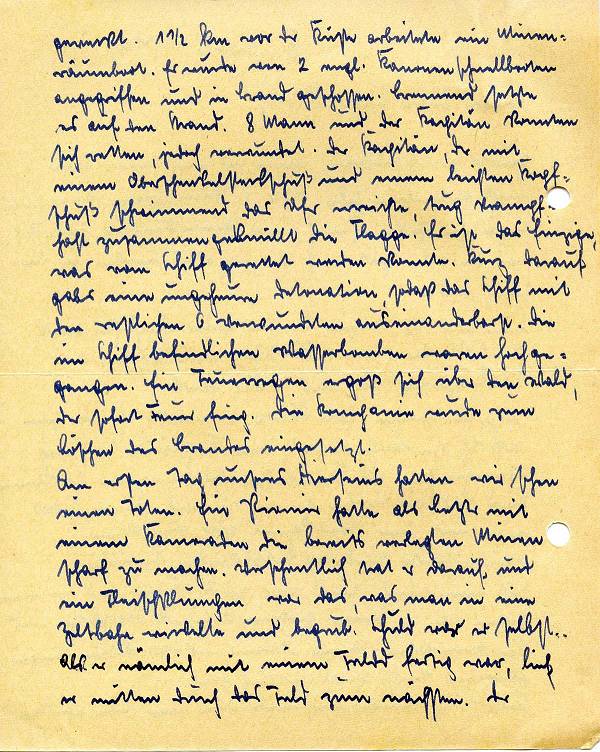 gemerkt. 1 1/2 km vor der Küste arbeitete ein Minen=
räumboot. Er wurde von 2 engl. Kanonenschnellbooten
angegriffen und in Brand geschossen. Brennend setzte
er auf den Strand. 8 Mann und der Kapitän konnten
sich retten, jedoch verwundet. Der Kapitän, der mit
einem Oberschenkelsteckschuß und einem leichten Kopf=
schuß schwimmend das Ufer erreichte, trug krampf=
haft zusammengeknüllt die Flagge. Er ist das Einzige,
was vom Schiff gerettet werden konnte. Kurz darauf
gabs eine ungeheure Detonation, sodaß das Schiff mit
den restlichen 6 Verwundeten auseinanderbarst. Die
im Schiff befindlichen Wasserbomben waren hochge=
gangen. Ein Feuerregen ergoß sich über den Wald,
der sofort Feuer fing. Die Kompanie wurde zum
Löschen des Brandes eingesetzt.
Am ersten Tag unseres Hierseins hatten wir schon
einen Toten. Ein Pionier hatte als letzter mit
einem Kameraden die bereits verlegten Minen
scharf zu machen. Versehentlich trat er darauf, und
ein Fleischklumpen war das, was man in eine
Zeltbahn wickelte und begrub. Schuld war er selbst..
Als er nämlich mit einem Feld fertig war, lief
er mitten durch das Feld zum nächsten. Der